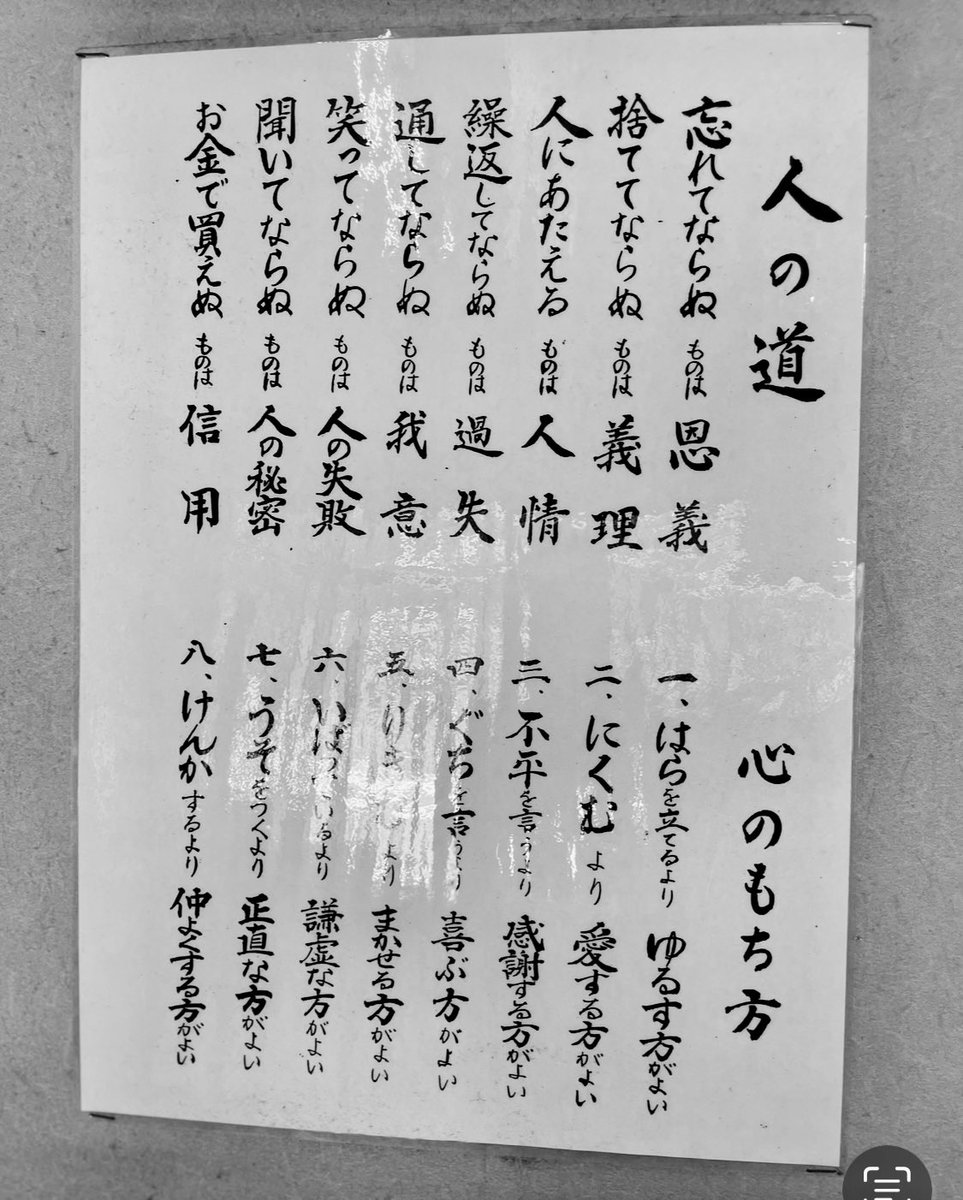 人の道
忘れてならぬものは恩義
捨ててならぬものは義理
人にあたえるものは人情
繰返してならぬものは過失
通してならぬものは我意
笑ってならぬものは人の失敗
聞いてならぬものは人の秘密
お金で買えぬものは信用
心のもち方
一、はらを立てるより ゆるす方がよい
二、にくむより 愛する方がよい
三、不平を言うより 感謝する方がよい
四、ぐちを言うより 喜ぶ方がよい
五、より まかせる方がよい
六、いばっているより 謙虚な方がよい
七、うそをつくより 正直な方がよい
八、けんかするより 仲よくする方がよい